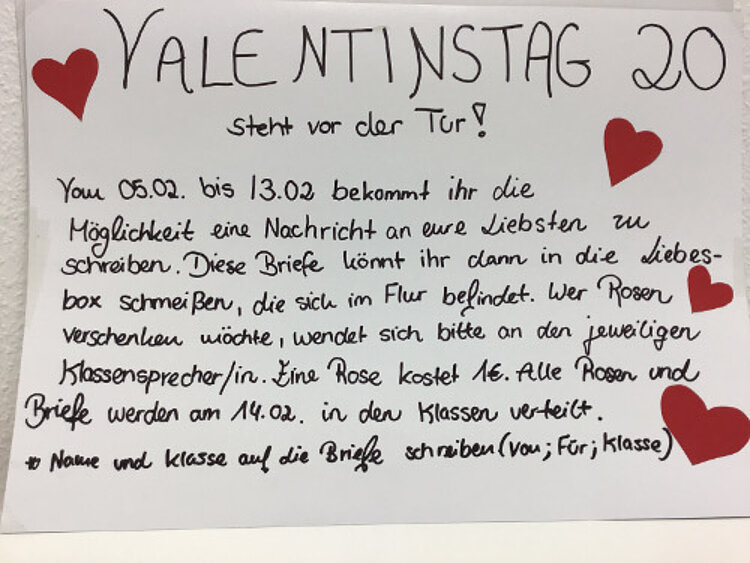 VALENTINSTAG 20
steht vor der Tür!
Vom 05.02. bis 13.02 bekommt ihr die
Möglichkeit eine Nachricht an eure Liebsten zu
schreiben. Diese Briefe könnt ihr dann in die Liebes-
box schmeißen, die sich im Flur befindet. Wer Rosen
verschenken möchte, wendet sich bitte an den jeweiligen
Klassensprecher/in. Eine Rose kostet 1€. Alle Rosen und
Briefe werden am 14.02. in den Klassen verteilt.
* Name und Klasse auf die Briefe schreiben (Von; Für; Klasse)